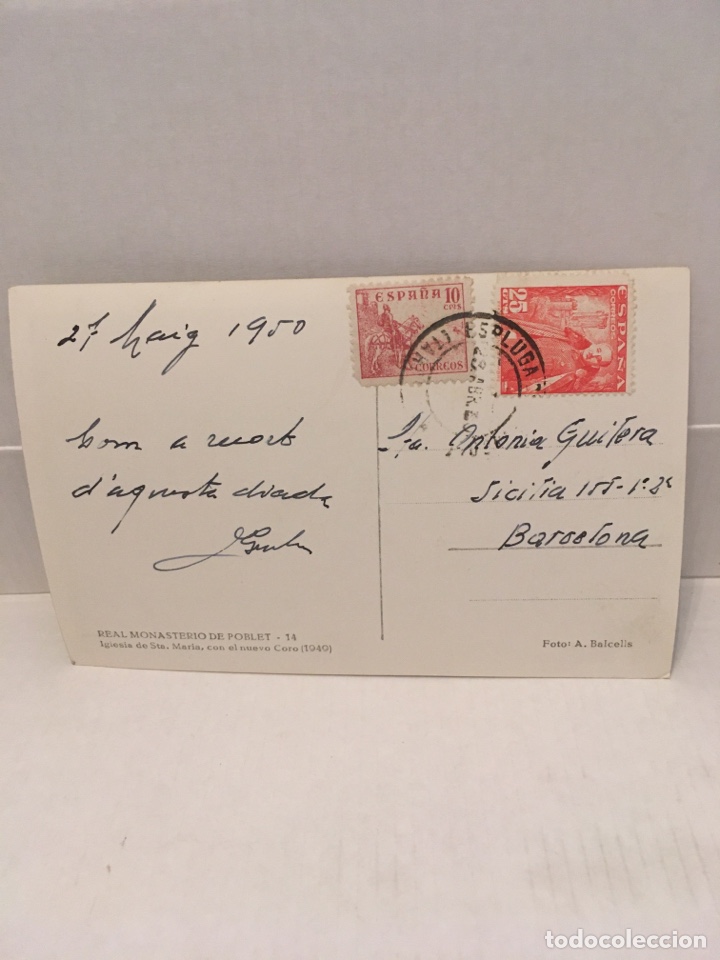 27 Maig 1950
com a record
d'aquesta diada
REAL MONASTERIO DE POBLET - 14
Iglesia de Sta. María, con el nuevo Coro (1949)
ESPAÑA 10
CTS
CORREOS
25
CTS
CORREOS
ESPAÑA
ESPLUGA
Sra. Antonia Guitera
Sicilia 155-1º 2ª
Barcelona
Foto: A. Balcells
todocoleccion